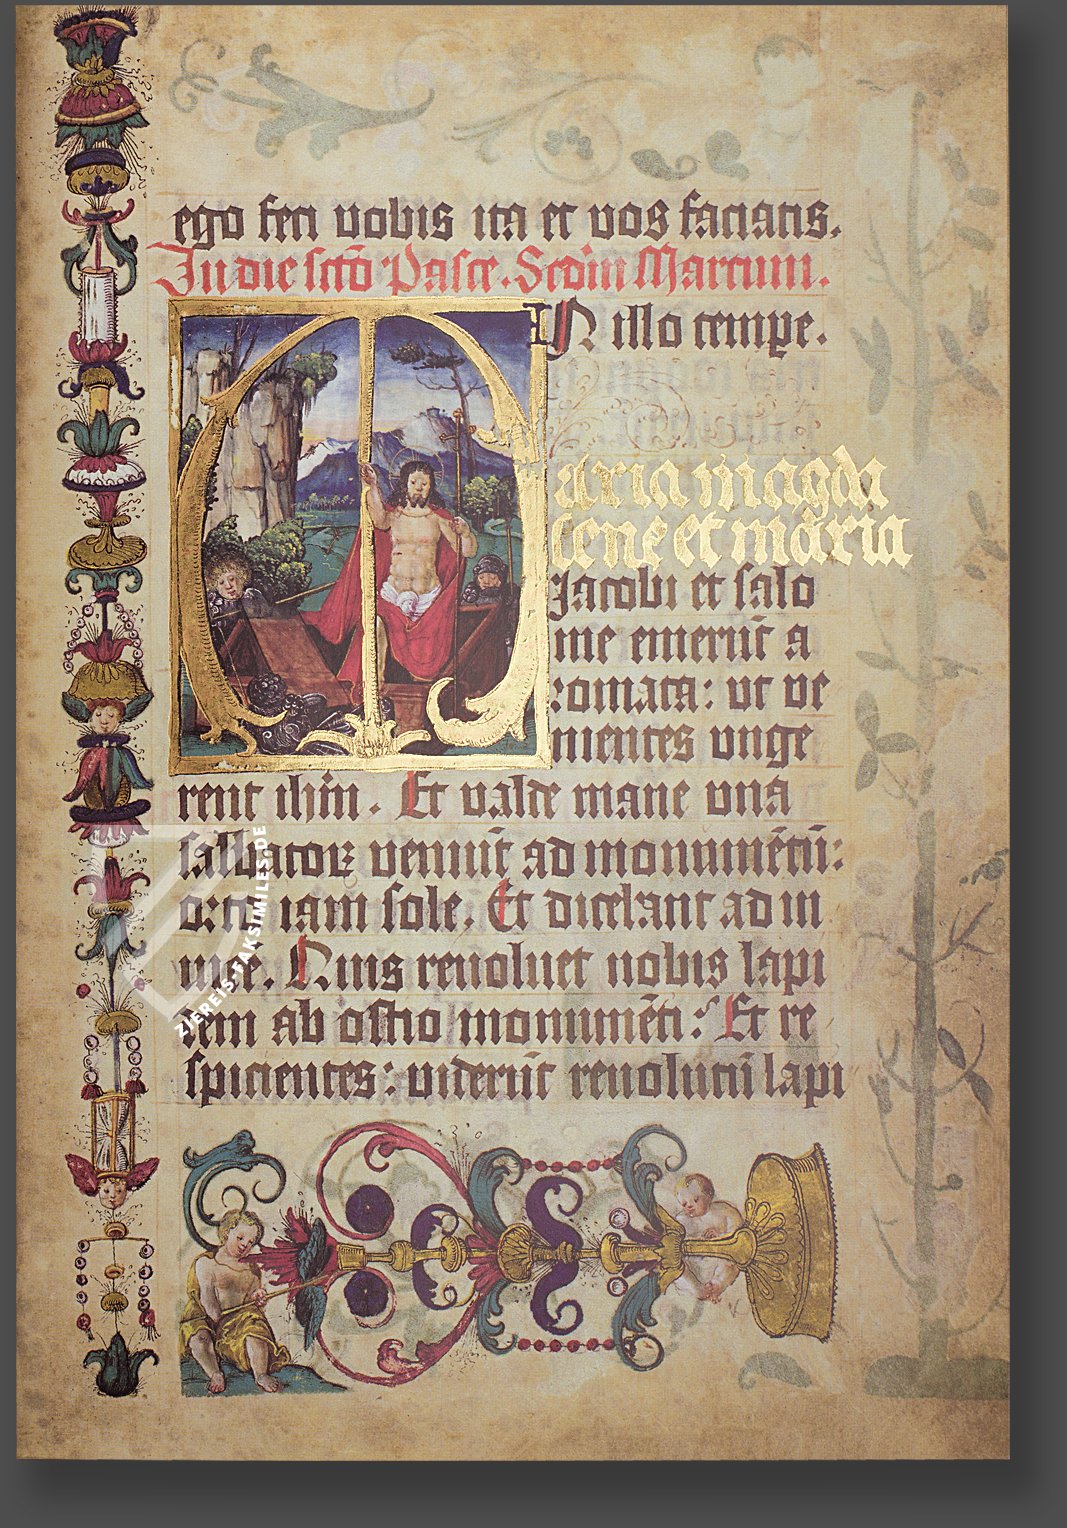 ego feci vobis ita et vos faciatis.
In die sctō Pasce. Scd'm Marcum.
IN illo tempe.
Maria magda
lene et maria
Jacobi et salo
me emerūt a
romata: ut ve
nientes unge
rent ihm̄. Et valde mane una
sabbatorum veniūt ad monumētū:
orto iam sole. Et dicebant ad in
vicē. Quis revolvet nobis lapi
dem ab ostio monumēti: Et re
spicientes: viderūt revolutū lapi
ZIEREIS-FAKSIMILES.DE